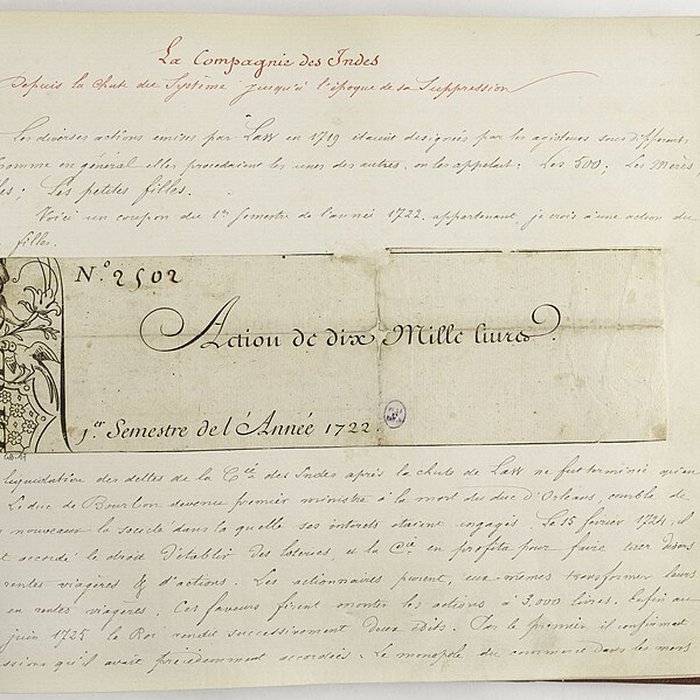 La Compagnie des Indes
Depuis la chute du Système jusqu'à l'époque de sa Suppression
Les diverses actions émises par Law en 1719 étaient désignées par les agioteurs sous différents
comme en général elles procédaient les unes des autres, on les appelait: Les 500; Les Mères,
les; Les petites filles.
Voici un coupon du 1er Semestre de l'année 1722, appartenant, je crois à une action des
filles.
N.º 2502
Action de dix Mille livres.
1.er Semestre de l'Année 1722
liquidation des dettes de la Cie des Indes après la chute de Law ne fut terminée qu'en
Le duc de Bourbon devenu premier ministre à la mort du duc d'Orléans, combla de
nouveaux la société dans laquelle ses intérêts étaient engagés. Le 15 février 1724, il
accordé le droit d'établir des loteries et la Cie en profita pour faire tirer divers
rentes viagères & d'actions. Les actionnaires purent, eux mêmes transformer leurs
en rentes viagères. Ces faveurs firent monter les actions à 3,000 livres. Enfin au
juin 1725 le Roi rendit successivement deux édits. Par le premier il confirmait
ssions qu'il avait précédemment accordées. Le monopole du commerce dans les mers